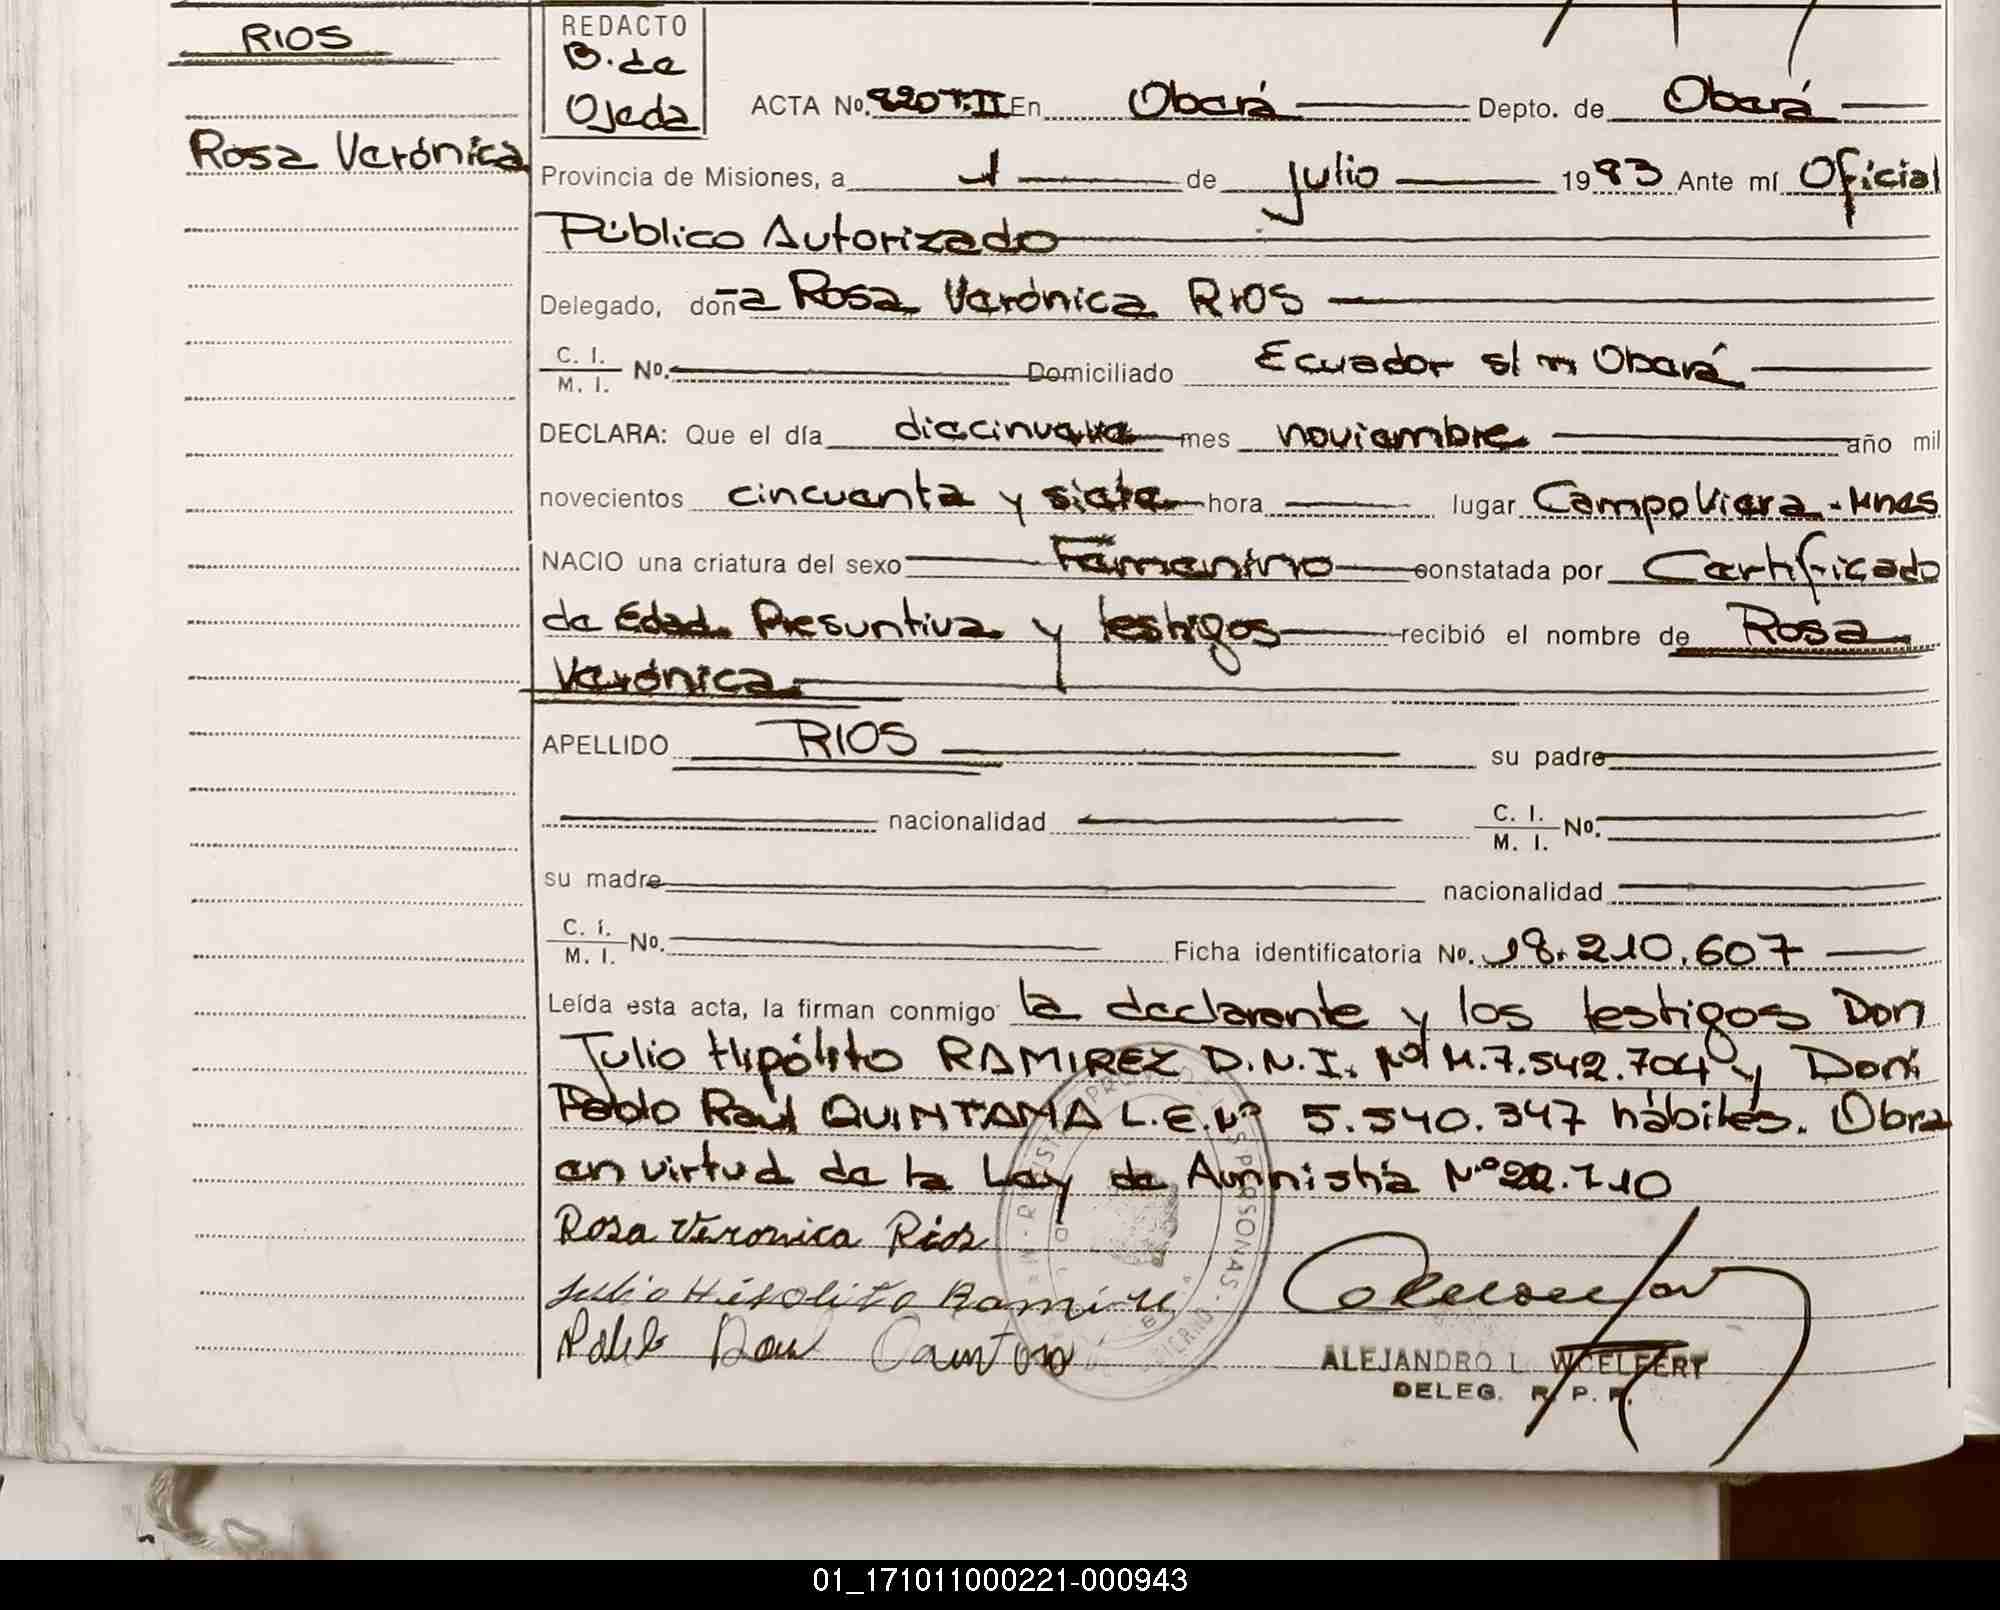 RIOS
Rosa Verónica
REDACTO
B. de
Ojeda
ACTA No. 820 T.II En Oberá Depto. de Oberá
Provincia de Misiones, a 1 de julio 1983 Ante mí Oficial
Público Autorizado
Delegado, doña Rosa Verónica RIOS
C. I.
M. I. No. Domiciliado Ecuador s/n Oberá
DECLARA: Que el día diecinueve mes noviembre año mil
novecientos cincuenta y siete hora lugar Campo Viera - Mnes
NACIO una criatura del sexo Femenino constatada por Certificado
de Edad Presuntiva y testigos recibió el nombre de Rosa
Verónica
APELLIDO RIOS su padre
nacionalidad C. I.
M. I. No.
su madre nacionalidad
C. I.
M. I. No. Ficha identificatoria No. 18.210.607
Leída esta acta, la firman conmigo la declarante y los testigos Don
Julio Hipólito RAMIREZ D.N.I. Nº M.7.542.704 y Don
Pablo Raúl QUINTANA L.E. Nº 5.540.347 hábiles. Obra
en virtud de la Ley de Amnistía Nº 22.710
Rosa Veronica Rios
Julio Hipolito Ramirez
ALEJANDRO L. WOELFERT
DELEG. R. P. P.
01_171011000221-000943